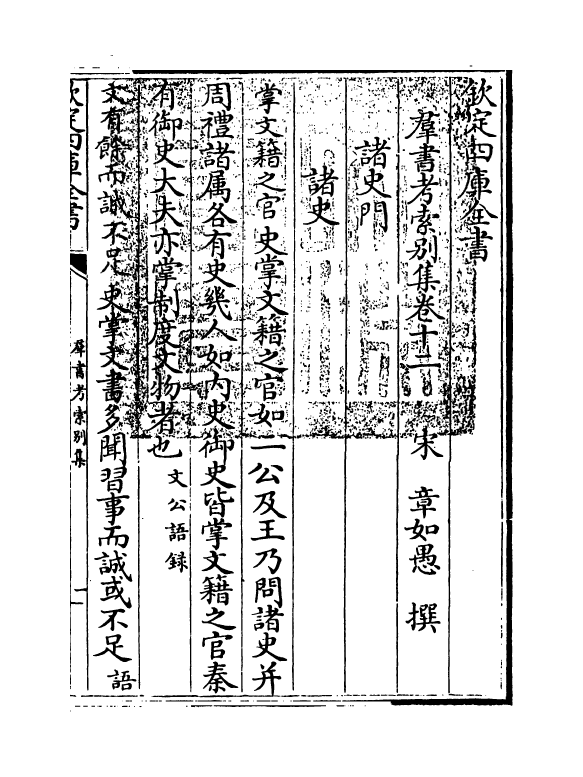 欽定四庫全書
羣書考索别集卷十二 宋 章如愚 撰
諸史門
諸史
掌文籍之官 史掌文籍之官如二公及王乃問諸史并
周禮諸属各有史幾人如内史御史皆掌文籍之官秦
有御史大夫亦掌制度文物者也 文公語録
文有餘而誠不足 史掌文書多聞習事而誠或不足 語
欽定四庫全書
羣書考索别集